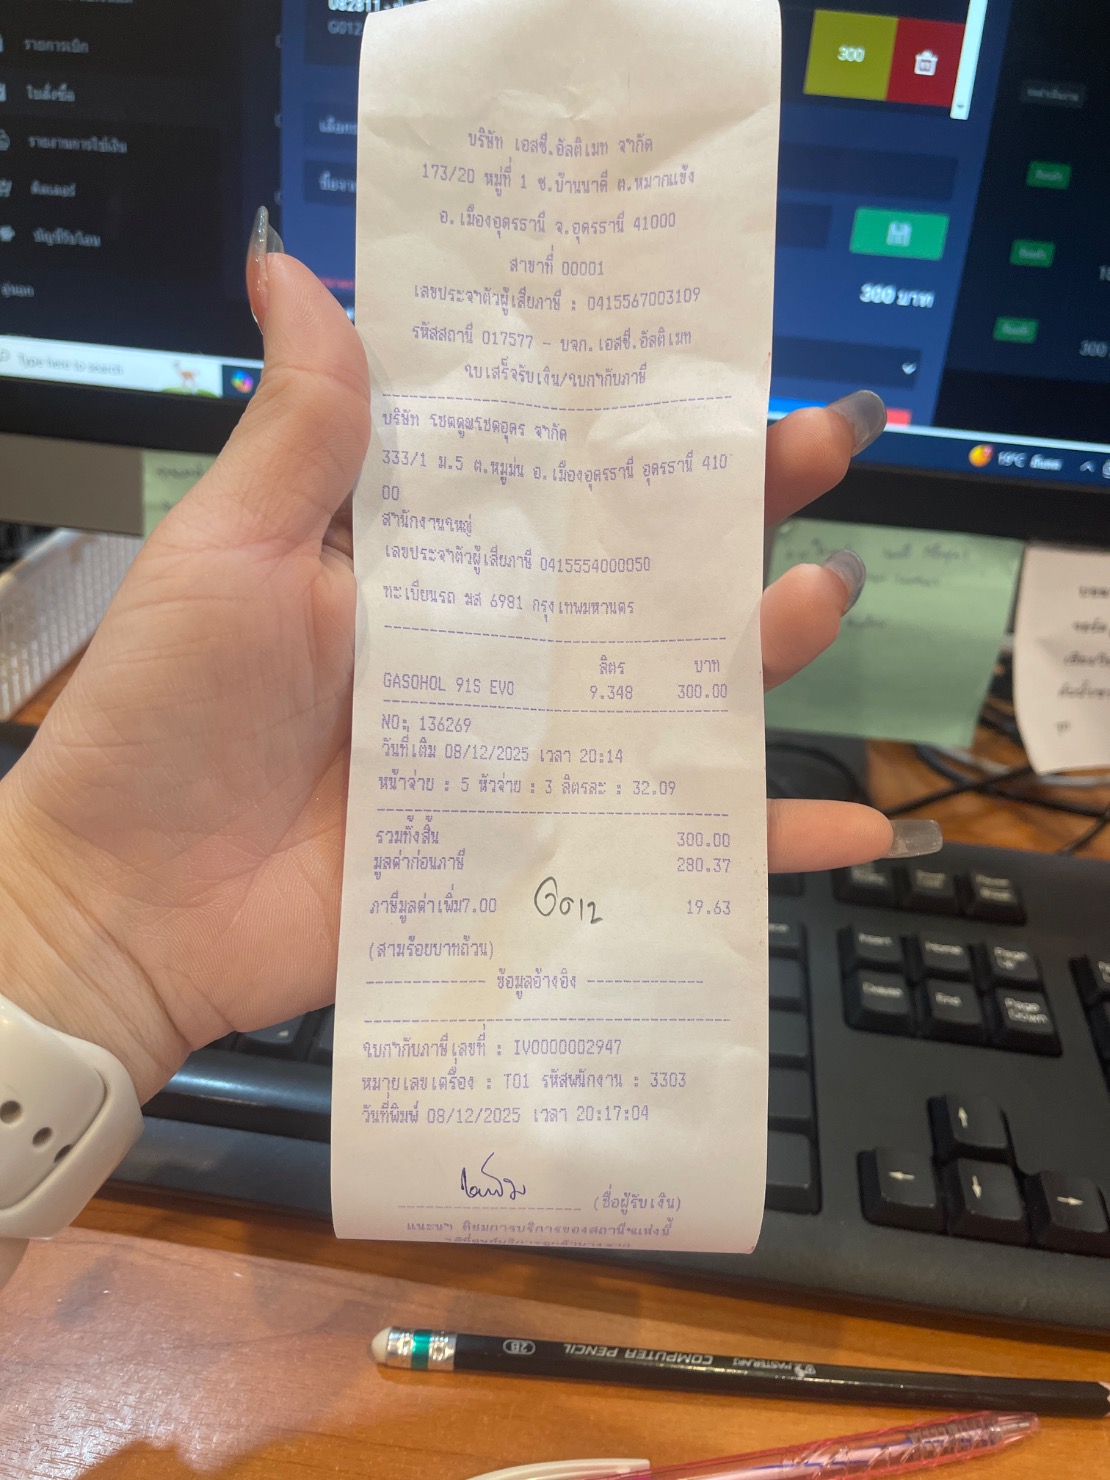 บริษัท เอสซี.อัลติเมท จำกัด
173/20 หมู่ที่ 1 ซ.บ้านนาดี ต.หมากแข้ง
อ.เมืองอุดรธานี จ.อุดรธานี 41000
สาขาที่ 00001
เลขประจำตัวผู้เสียภาษี : 0415567003109
รหัสสถานี 017577 - บจก.เอสซี.อัลติเมท
ใบเสร็จรับเงิน/ใบกำกับภาษี
บริษัท โชตดูมโชตอุดร จำกัด
333/1 ม.5 ต.หมูม่น อ.เมืองอุดรธานี อุดรธานี 410
00
สำนักงานใหญ่
เลขประจำตัวผู้เสียภาษี 0415554000050
ทะเบียนรถ มส 6981 กรุงเทพมหานคร
ลิตร บาท
GASOHOL 91S EVO 9.348 300.00
NO: 136269
วันที่เติม 08/12/2025 เวลา 20:14
หน้าจ่าย : 5 หัวจ่าย : 3 ลิตรละ : 32.09
รวมทั้งสิ้น 300.00
มูลค่าก่อนภาษี 280.37
ภาษีมูลค่าเพิ่ม7.00 19.63
G012
(สามร้อยบาทถ้วน)
ข้อมูลอ้างอิง
ใบกำกับภาษีเลขที่ : IV0000002947
หมายเลขเครื่อง : T01 รหัสพนักงาน : 3303
วันที่พิมพ์ 08/12/2025 เวลา 20:17:04
(ชื่อผู้รับเงิน)
แนะนำ ติชมการบริการของสถานีฯแห่งนี้
รายการเบิก
ใบสั่งซื้อ
รายงานการใช้เงิน
Type here to search
082811
G012
300
300 บาท
300
19°C
COMPUTER PENCIL 2B
Insert
Home
Page Up
Delete
End
Page Down